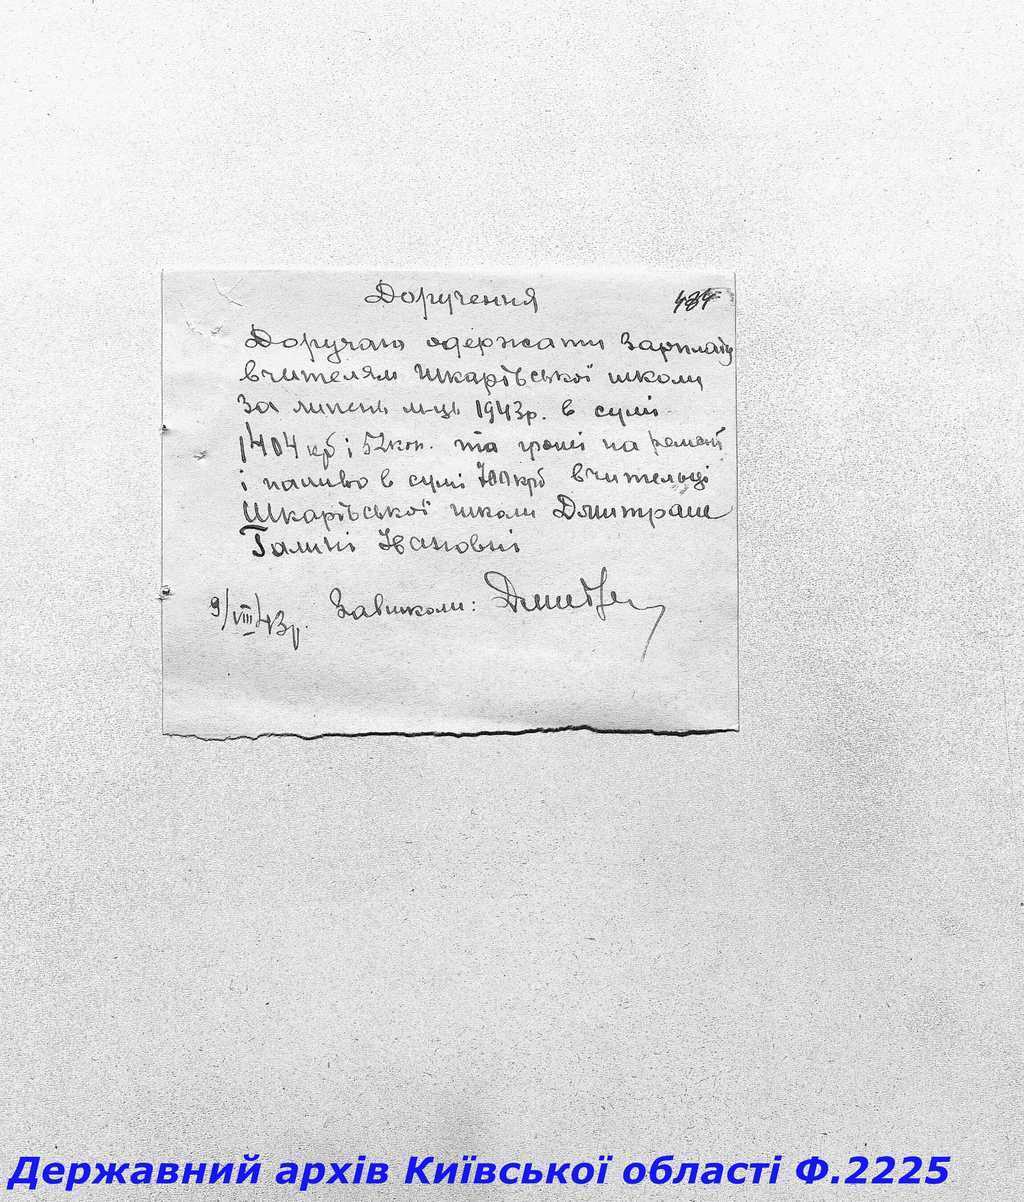 Доручення
Доручаю одержати зарплату
вчителям Шкарівської школи
за липень м-ць 1943р. в сумі
1404 крб і 52 коп. та гроші на ремонт
і паливо в сумі 700 крб вчительці
Шкарівської школи Дмитраш
Галині
9/VIII 43р. Завшколи:
Державний архів Київської області Ф.2225